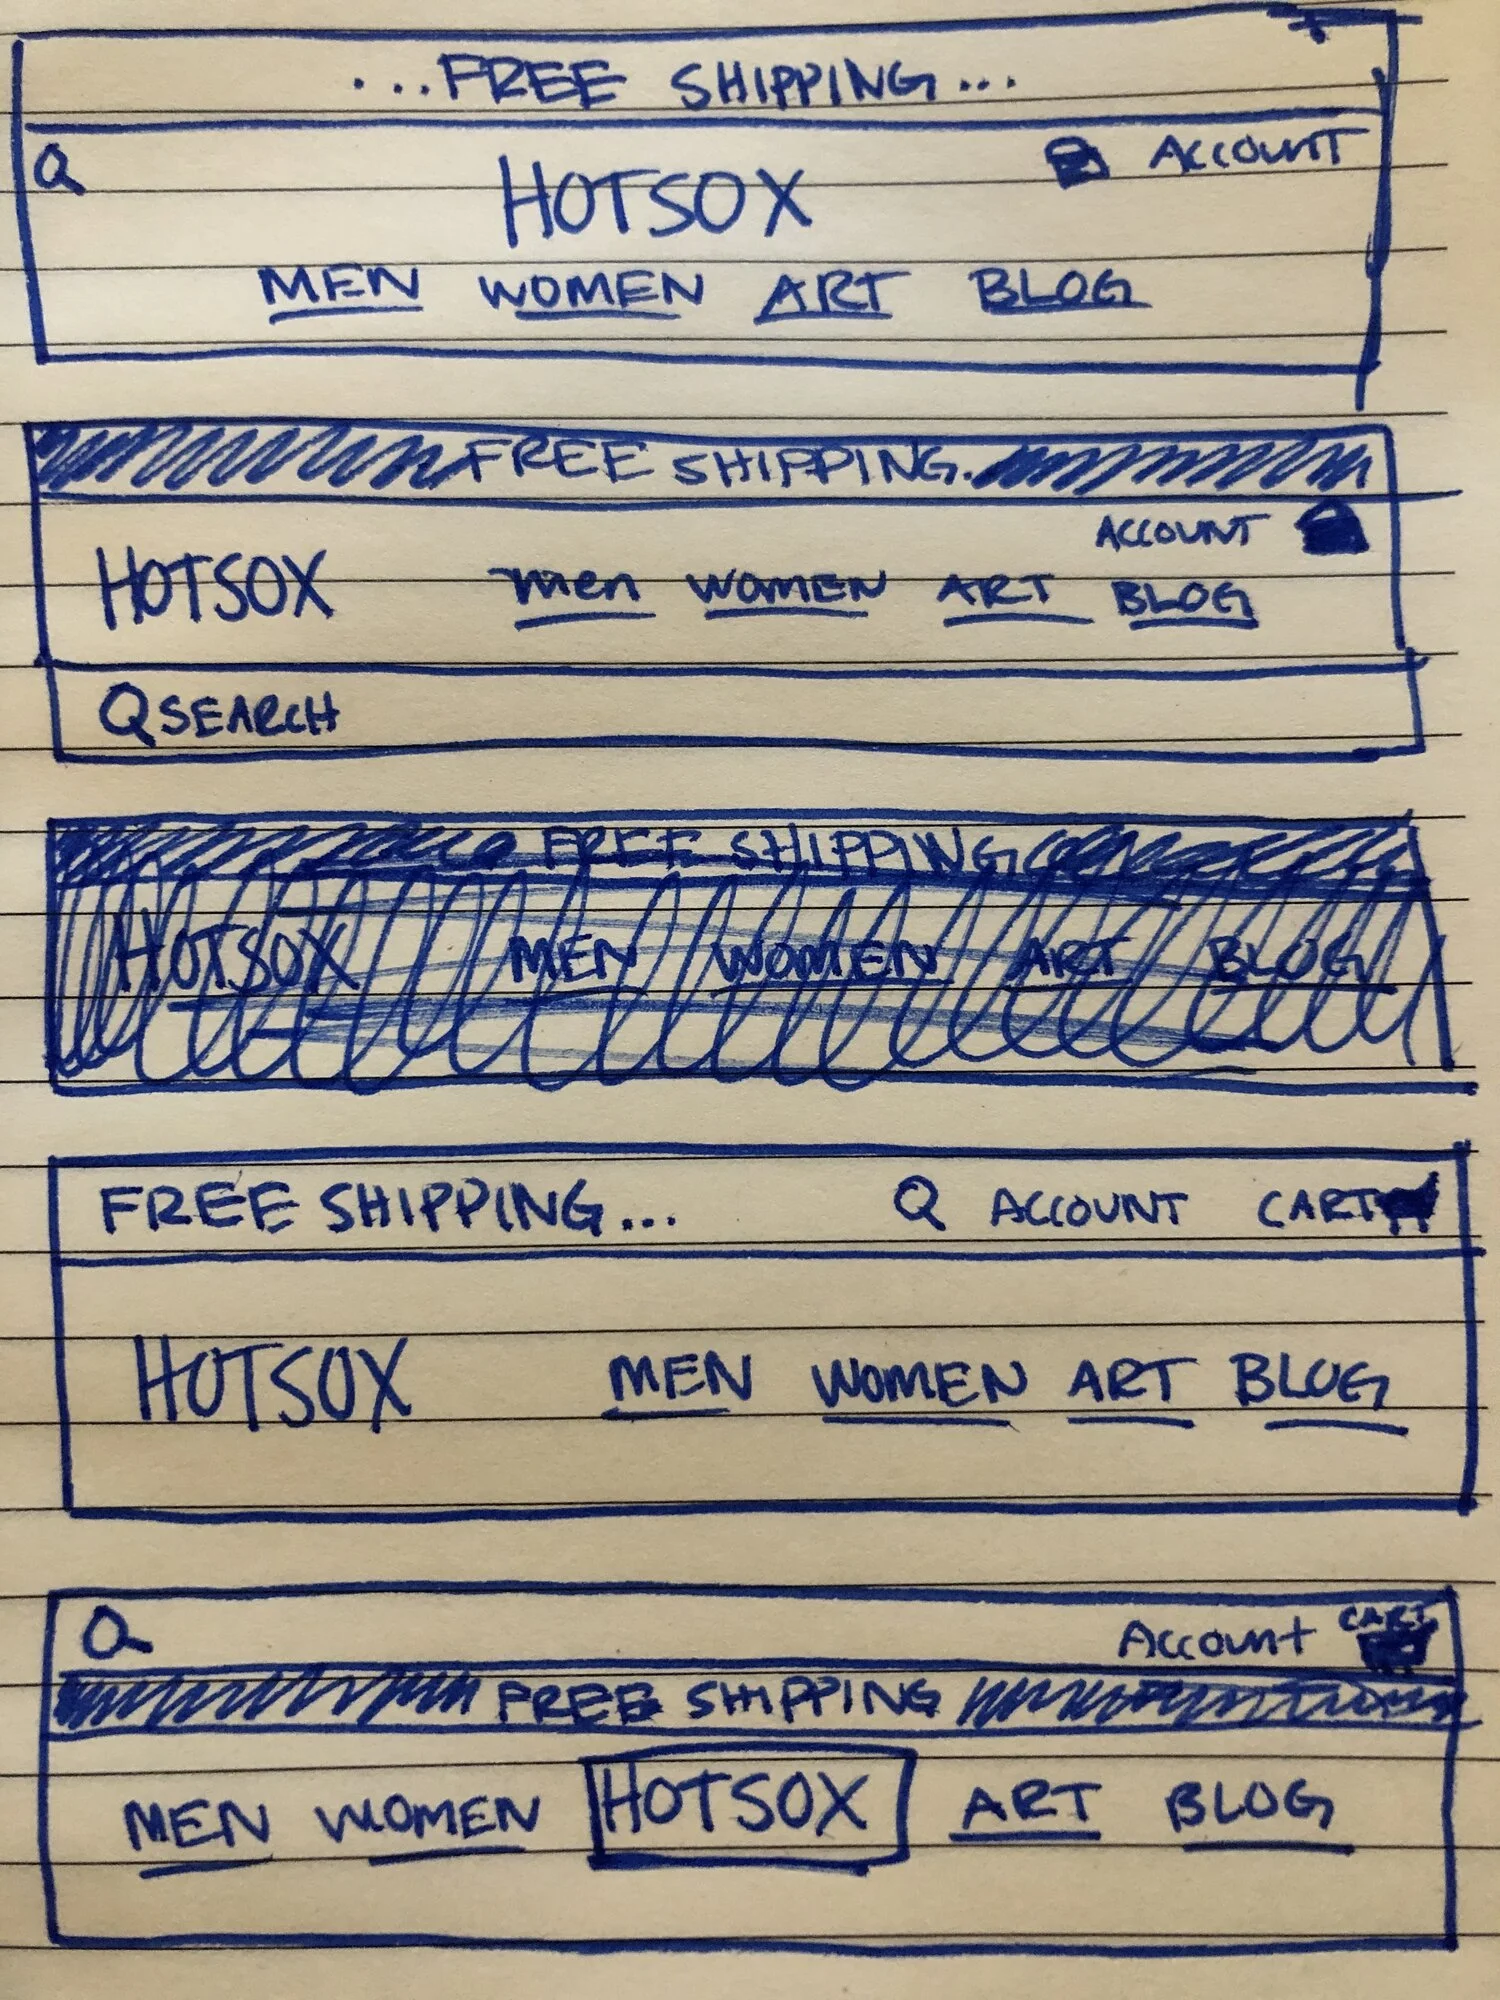 ...FREE SHIPPING...
ACCOUNT
HOTSOX
MEN WOMEN ART BLOG
FREE SHIPPING.
ACCOUNT
HOTSOX men WOMEN ART BLOG
SEARCH
FREE SHIPPING
HOTSOX MEN WOMEN ART BLOG
FREE SHIPPING... ACCOUNT CART
HOTSOX MEN WOMEN ART BLOG
Account CART
FREE SHIPPING
MEN WOMEN HOTSOX ART BLOG